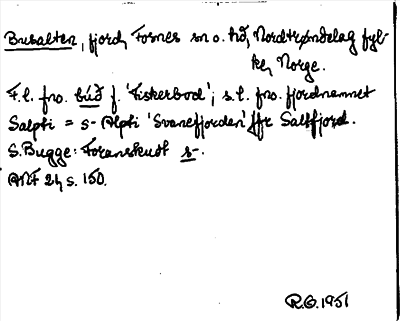 Busalten, fjord, Fosnes sn o. hd, Nordtrøndelag fyl-
ke, Norge.
F.l. fno. búð f. 'Fiskerbod'; s.l. fno. fjordnamnet
Salpti = s- Alpti 'Svanefjorden' ffr Saltfjord.
S. Bugge: Foranskudt s-.
ANF 21, s. 150.
R.O. 1951